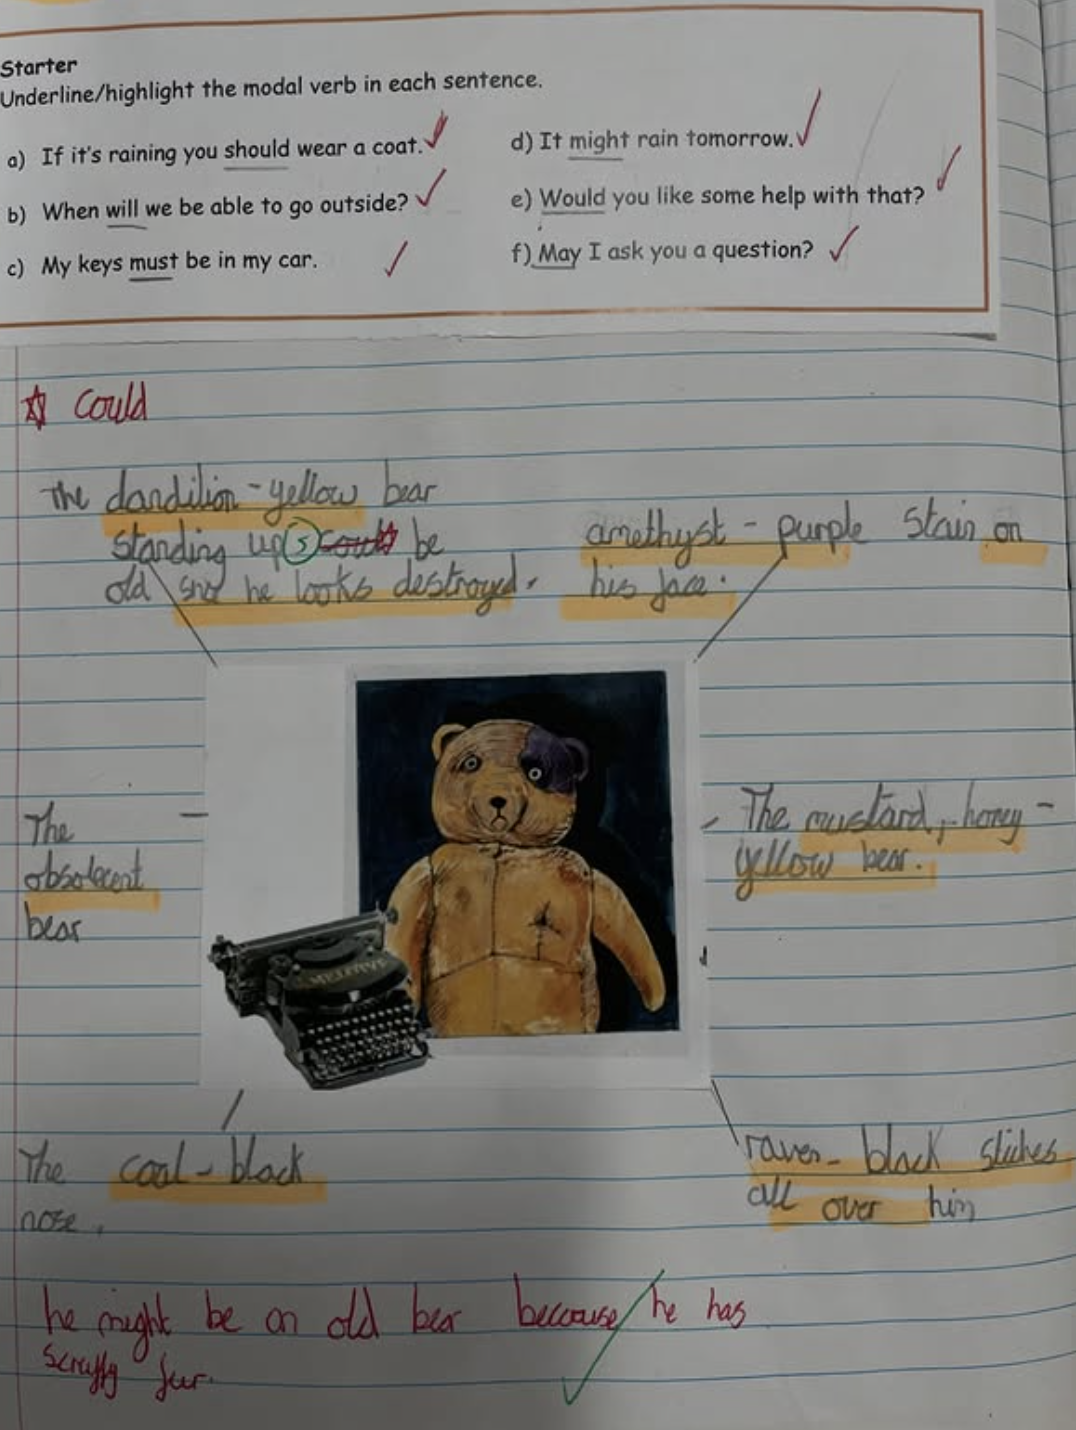 Starter
Underline/highlight the modal verb in each sentence.
a) If it's raining you should wear a coat.
b) When will we be able to go outside?
c) My keys must be in my car.
d) It might rain tomorrow.
e) Would you like some help with that?
f) May I ask you a question?
Could
The dandilion-yellow bear
standing up s could be
old he looks destroyed.
amethyst - purple stain on
his face.
The
bear
The mustard, honey -
yellow bear.
The coal-black
nose.
raven-black stiches
all over him
he might be an old bear because he has
scruffy fur.